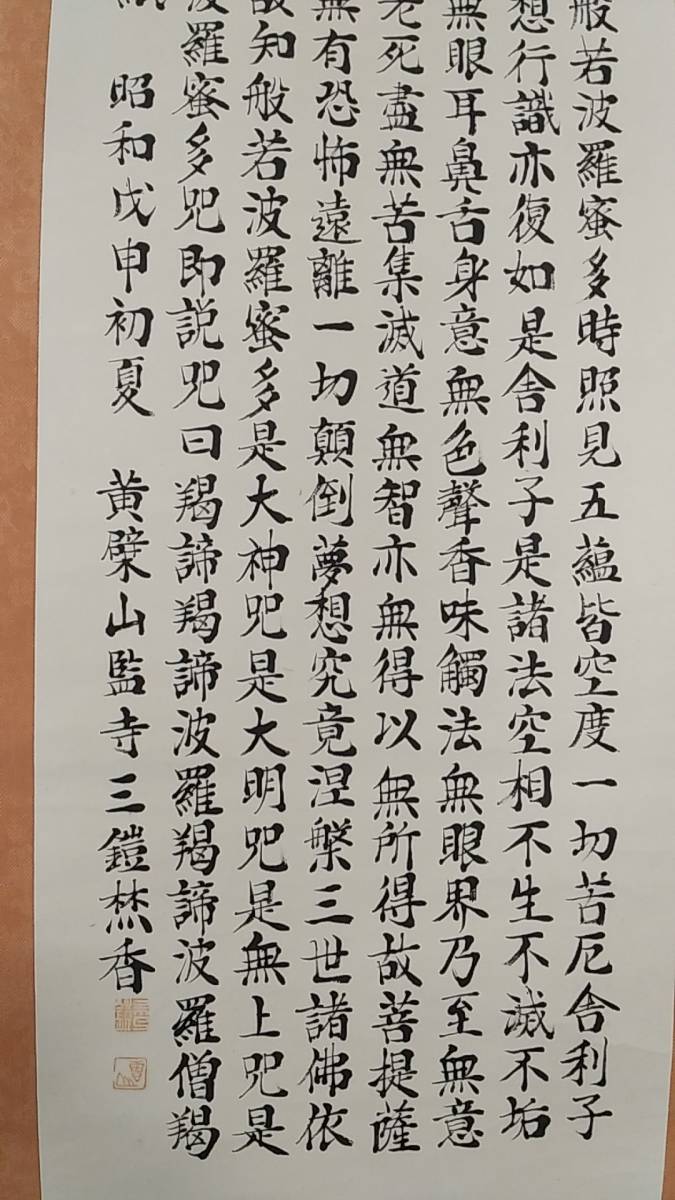 般若波羅蜜多時照見五蘊皆空度一切苦厄舍利子
想行識亦復如是舍利子是諸法空相不生不滅不垢
無眼耳鼻舌身意無色聲香味觸法無眼界乃至無意
老死盡無苦集滅道無智亦無得以無所得故菩提薩
無有恐怖遠離一切顛倒夢想究竟涅槃三世諸佛依
故知般若波羅蜜多是大神咒是大明咒是無上咒是
波羅蜜多咒即説咒曰羯諦羯諦波羅羯諦波羅僧羯
昭和戊申初夏 黄檗山監寺三鎧焚香